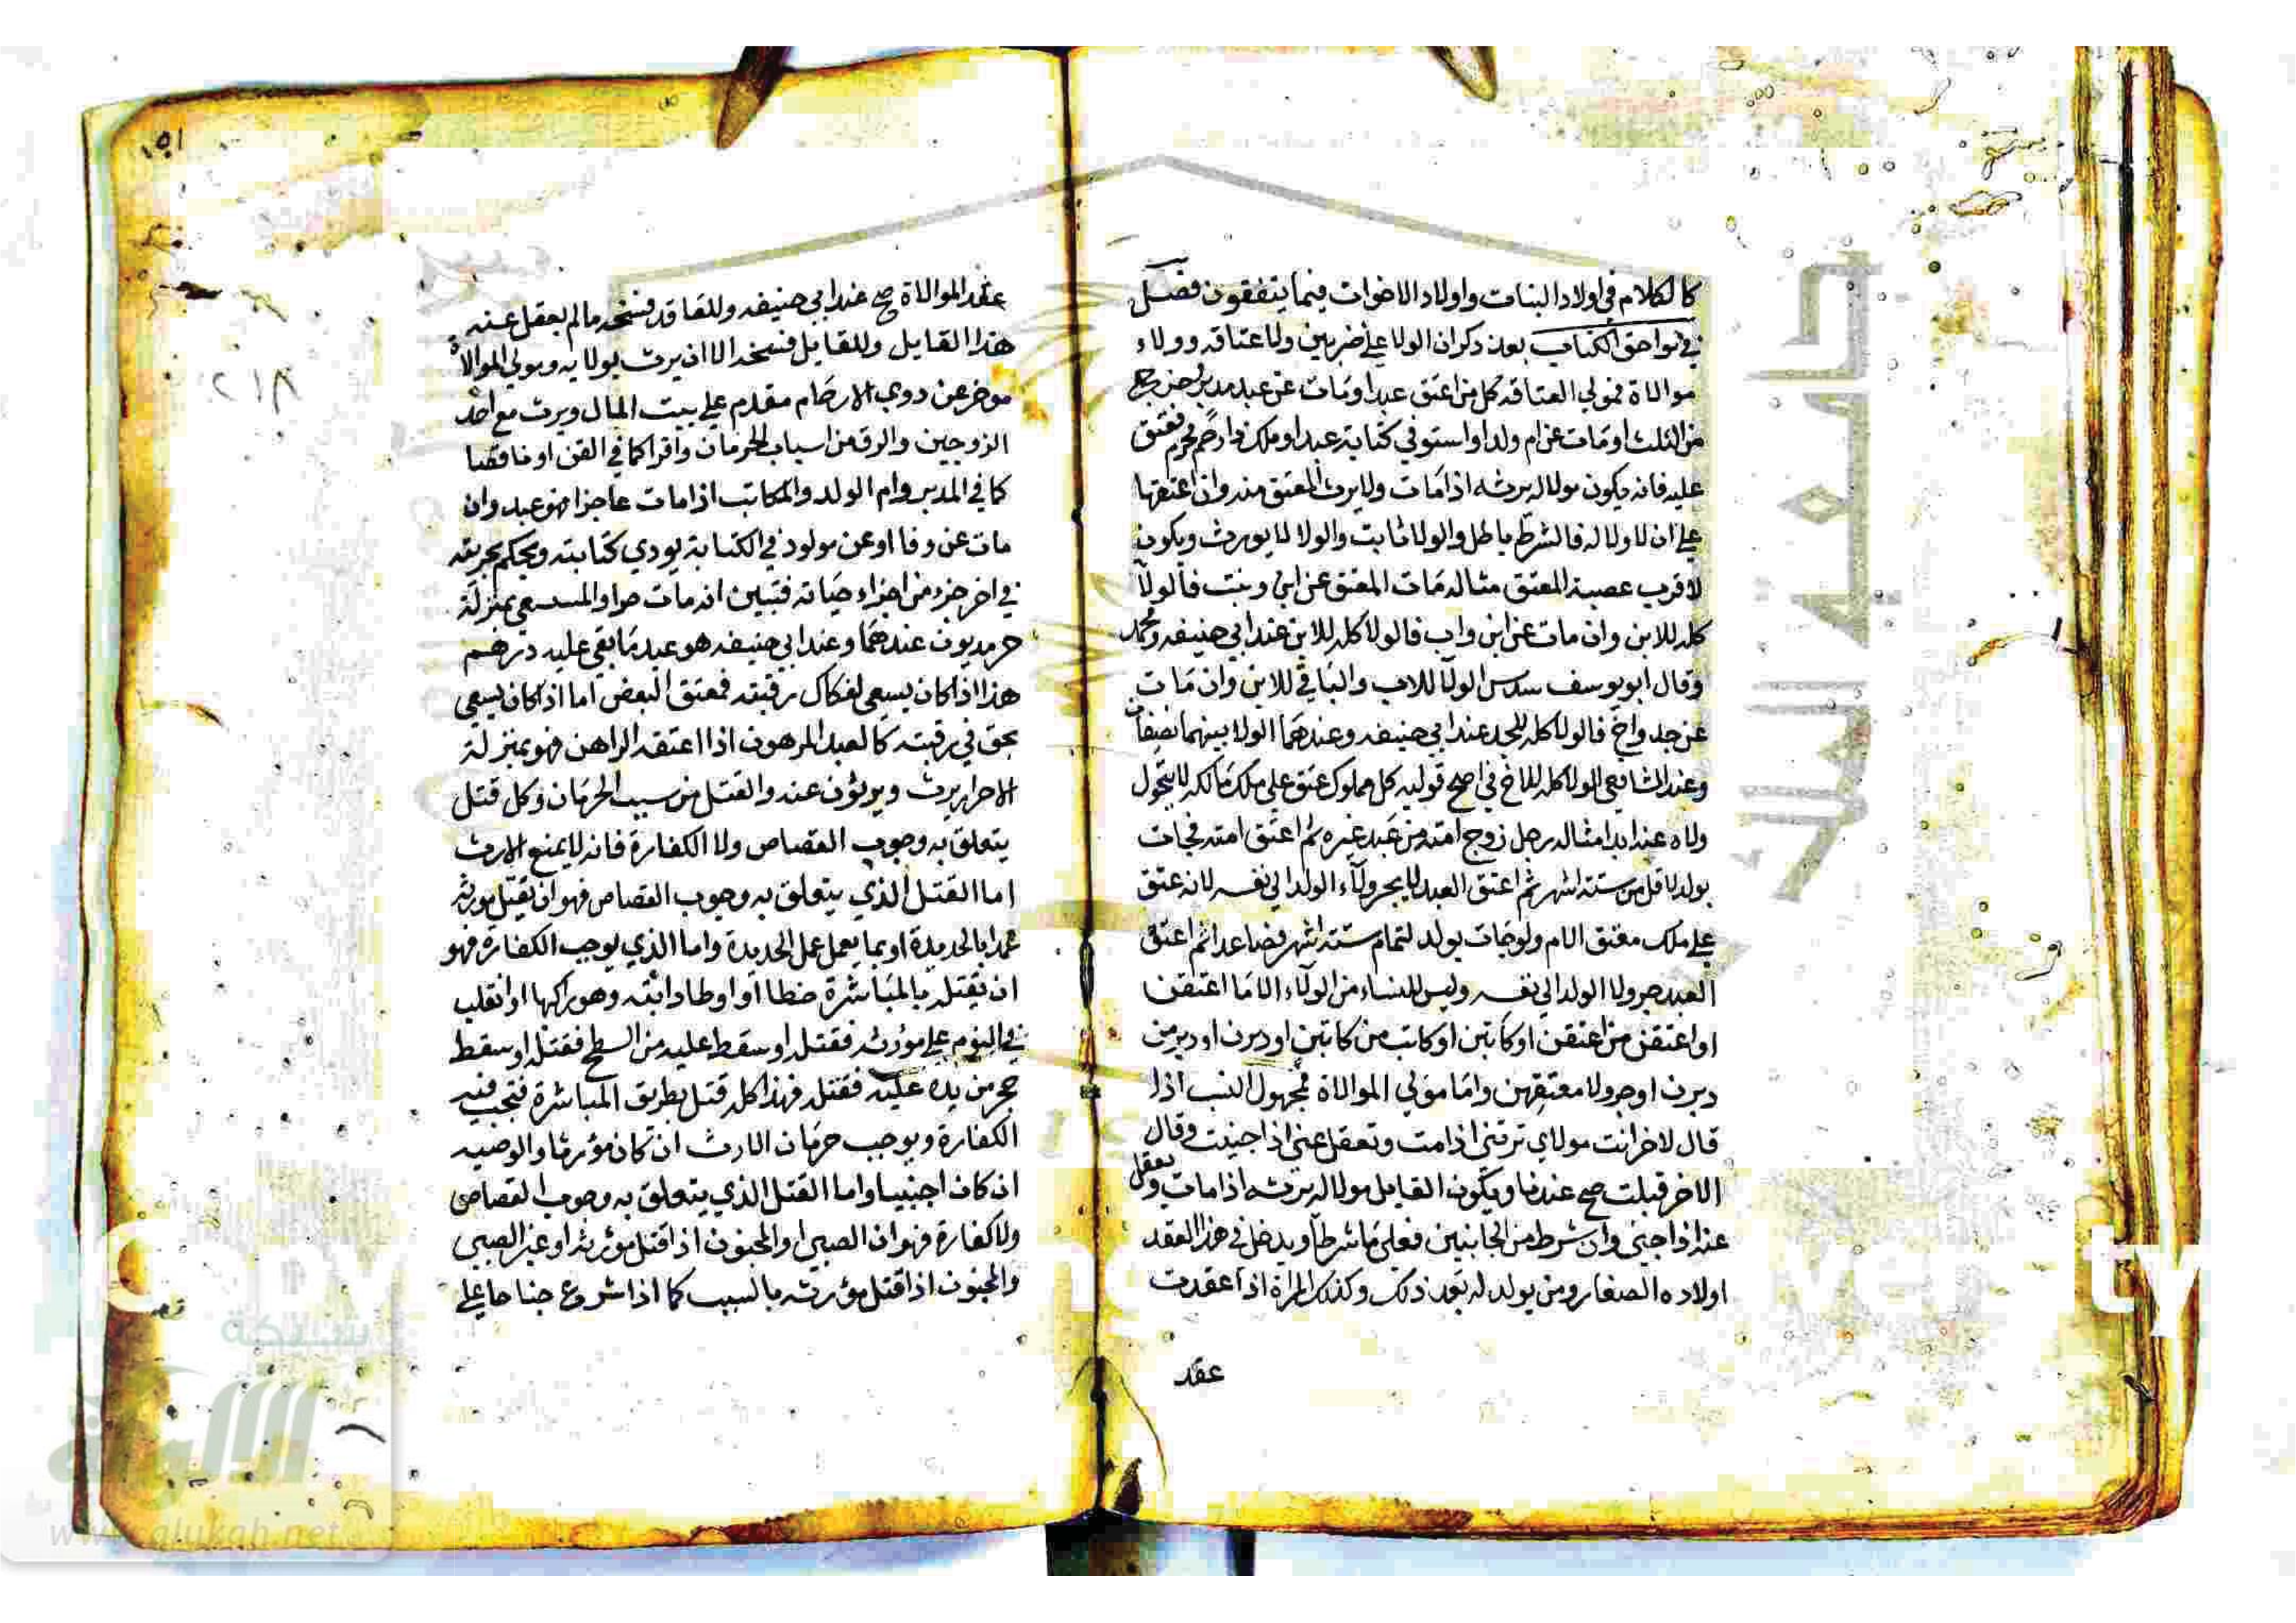 كالكلام في اولاد البنات واولاد الاخوات فيما يتفقون فصل
في لواحق الكتاب بعد ذكر ان الولا علي ضربين ولا عتاقه وولاء
موالاة فمولي العتاقه كل من اعتق عبدا او مات عن عبد مدبر
من الثلث او مات عن ام ولد او استوفي كتابة عبد او ملك ذا رحم محرم فعتق
عليه فانه يكون مولا له يرثه اذا مات ولا يرث المعتق منه وان اعتقها
علي ان لا ولا له فالشرط باطل والولا ثابت والولا لا يورث ويكون
لاقرب عصبة المعتق مثاله مات المعتق عن ابن وبنت فالولا
كله للابن وان مات عن ابن واب فالولا كله للابن عند ابي حنيفه ومحمد
وقال ابو يوسف سدس الولا للاب والباقي للابن وان مات
عن جد واخ فالولا كله للجد عند ابي حنيفه وعندهما الولا بينهما نصفان
وعند الشافعي الولا كله للاخ في اصح قوليه كل مملوك عتق علي ملك مالكه لا يتحول
ولاه عنه ابدا مثاله رجل زوج امته من عبد غيره ثم اعتق امته فجات
بولد لاقل من ستة اشهر ثم اعتق العبد لا يجر ولاء الولد الي نفسه لانه عتق
علي ملك معتق الام ولو جات بولد لتمام ستة اشهر فصاعدا ثم اعتق
العبد جر ولا الولد الي نفسه وليس للنساء من الولاء الا ما اعتقن
او اعتق من اعتقن او كاتبن او كاتب من كاتبن او دبرن او دبر من
دبرن او جر ولا معتقهن واما مولي الموالاة فمجهول النسب اذا
قال لاخر انت مولاي ترثني اذا مت وتعقل عني اذا جنيت وقال
الاخر قبلت صح عندنا ويكون القابل مولا له يرثه اذا مات ويعقل
عنه اذا جني وان شرط من الجانبين فعلي ما شرطا ويدخل في هذا العقد
اولاده الصغار ومن يولد له بعد ذلك وكذلك المراة اذا عقدت
عقد
١٥١
٢١٨
عقد الموالاة صح عند ابي حنيفه وللعاقد فسخه ما لم يعقل عنه
هذا القابل وللقابل فسخه الا ان يرث بولايه ومولي الموالاة
موخر عن ذوي الارحام مقدم علي بيت المال ويرث مع احد
الزوجين والرق من اسباب الحرمان وافرا كما في القن او ناقصا
كما في المدبر وام الولد والمكاتب اذا مات عاجزا فهو عبد وان
مات عن وفا او عن مولود في الكتابة يودي كتابته ويحكم بحريته
في اخر جزء من اجزاء حياته فتبين انه مات حرا والمستسعي بمنزلة
حر مديون عندهما وعند ابي حنيفه هو عبد ما بقي عليه درهم
هذا اذا كان يسعي لفكاك رقبته فمعتق البعض اما اذا كان يسعي
بحق في رقبته كالعبد المرهون اذا اعتقه الراهن فهو بمنزلة
الاحرار يرث ويورثون عنه والقتل من سبب الحرمان وكل قتل
يتعلق به وجوب القصاص ولا الكفارة فانه لا يمنع الارث
اما القتل الذي يتعلق به وجوب القصاص فهو ان يقتل مورثه
عمدا بالحديدة او بما يعمل عمل الحديدة واما الذي يوجب الكفارة فهو
ان يقتله بالمباشرة خطا او اوطا دابته وهو راكبها او انقلب
في النوم علي مورثه فقتله او سقط عليه من السطح فقتله او سقط
حجر من يده عليه فقتله فهذا كله قتل بطريق المباشرة فتجب فيه
الكفارة ويوجب حرمان الارث ان كان مورثا والوصيه
ان كان اجنبيا واما القتل الذي يتعلق به وجوب القصاص
ولا كفارة فهو ان الصبي والمجنون اذا قتل مورثه او غير الصبي
والمجنون اذا قتل مورثه بالسبب كما اذا اشرع جناحا علي
شبكة
الألوكة
www.alukah.net